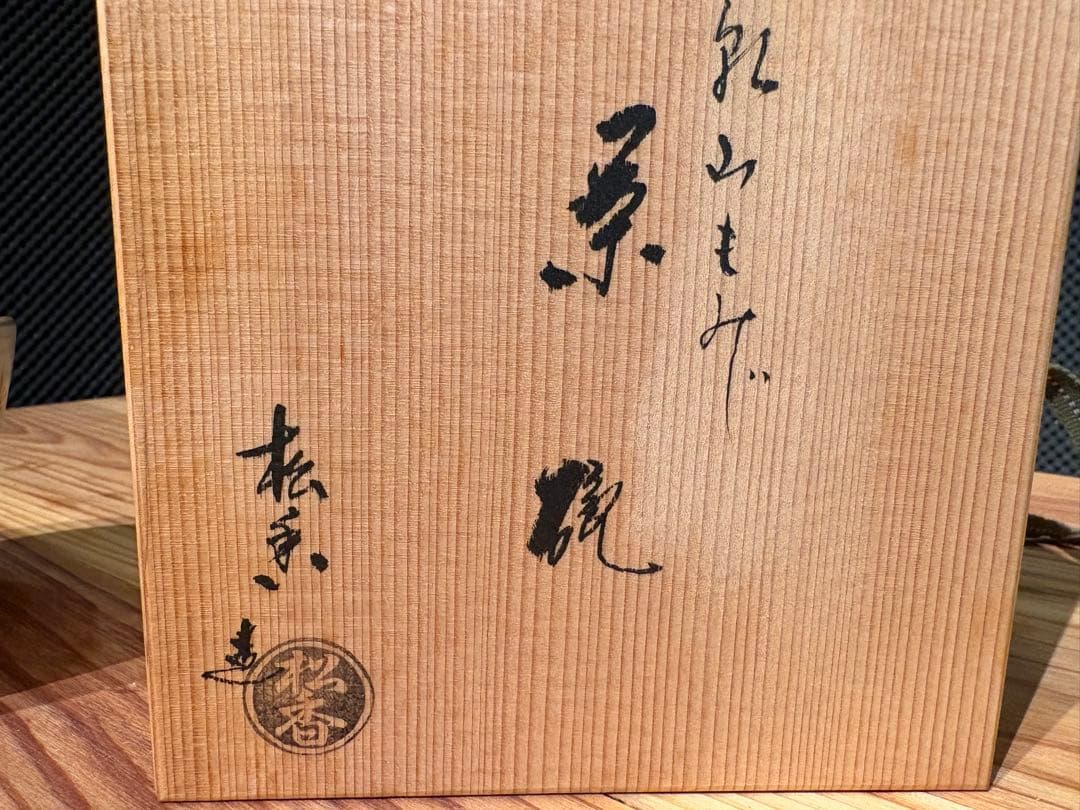 乾山もみじ
茶碗
松香造
松香